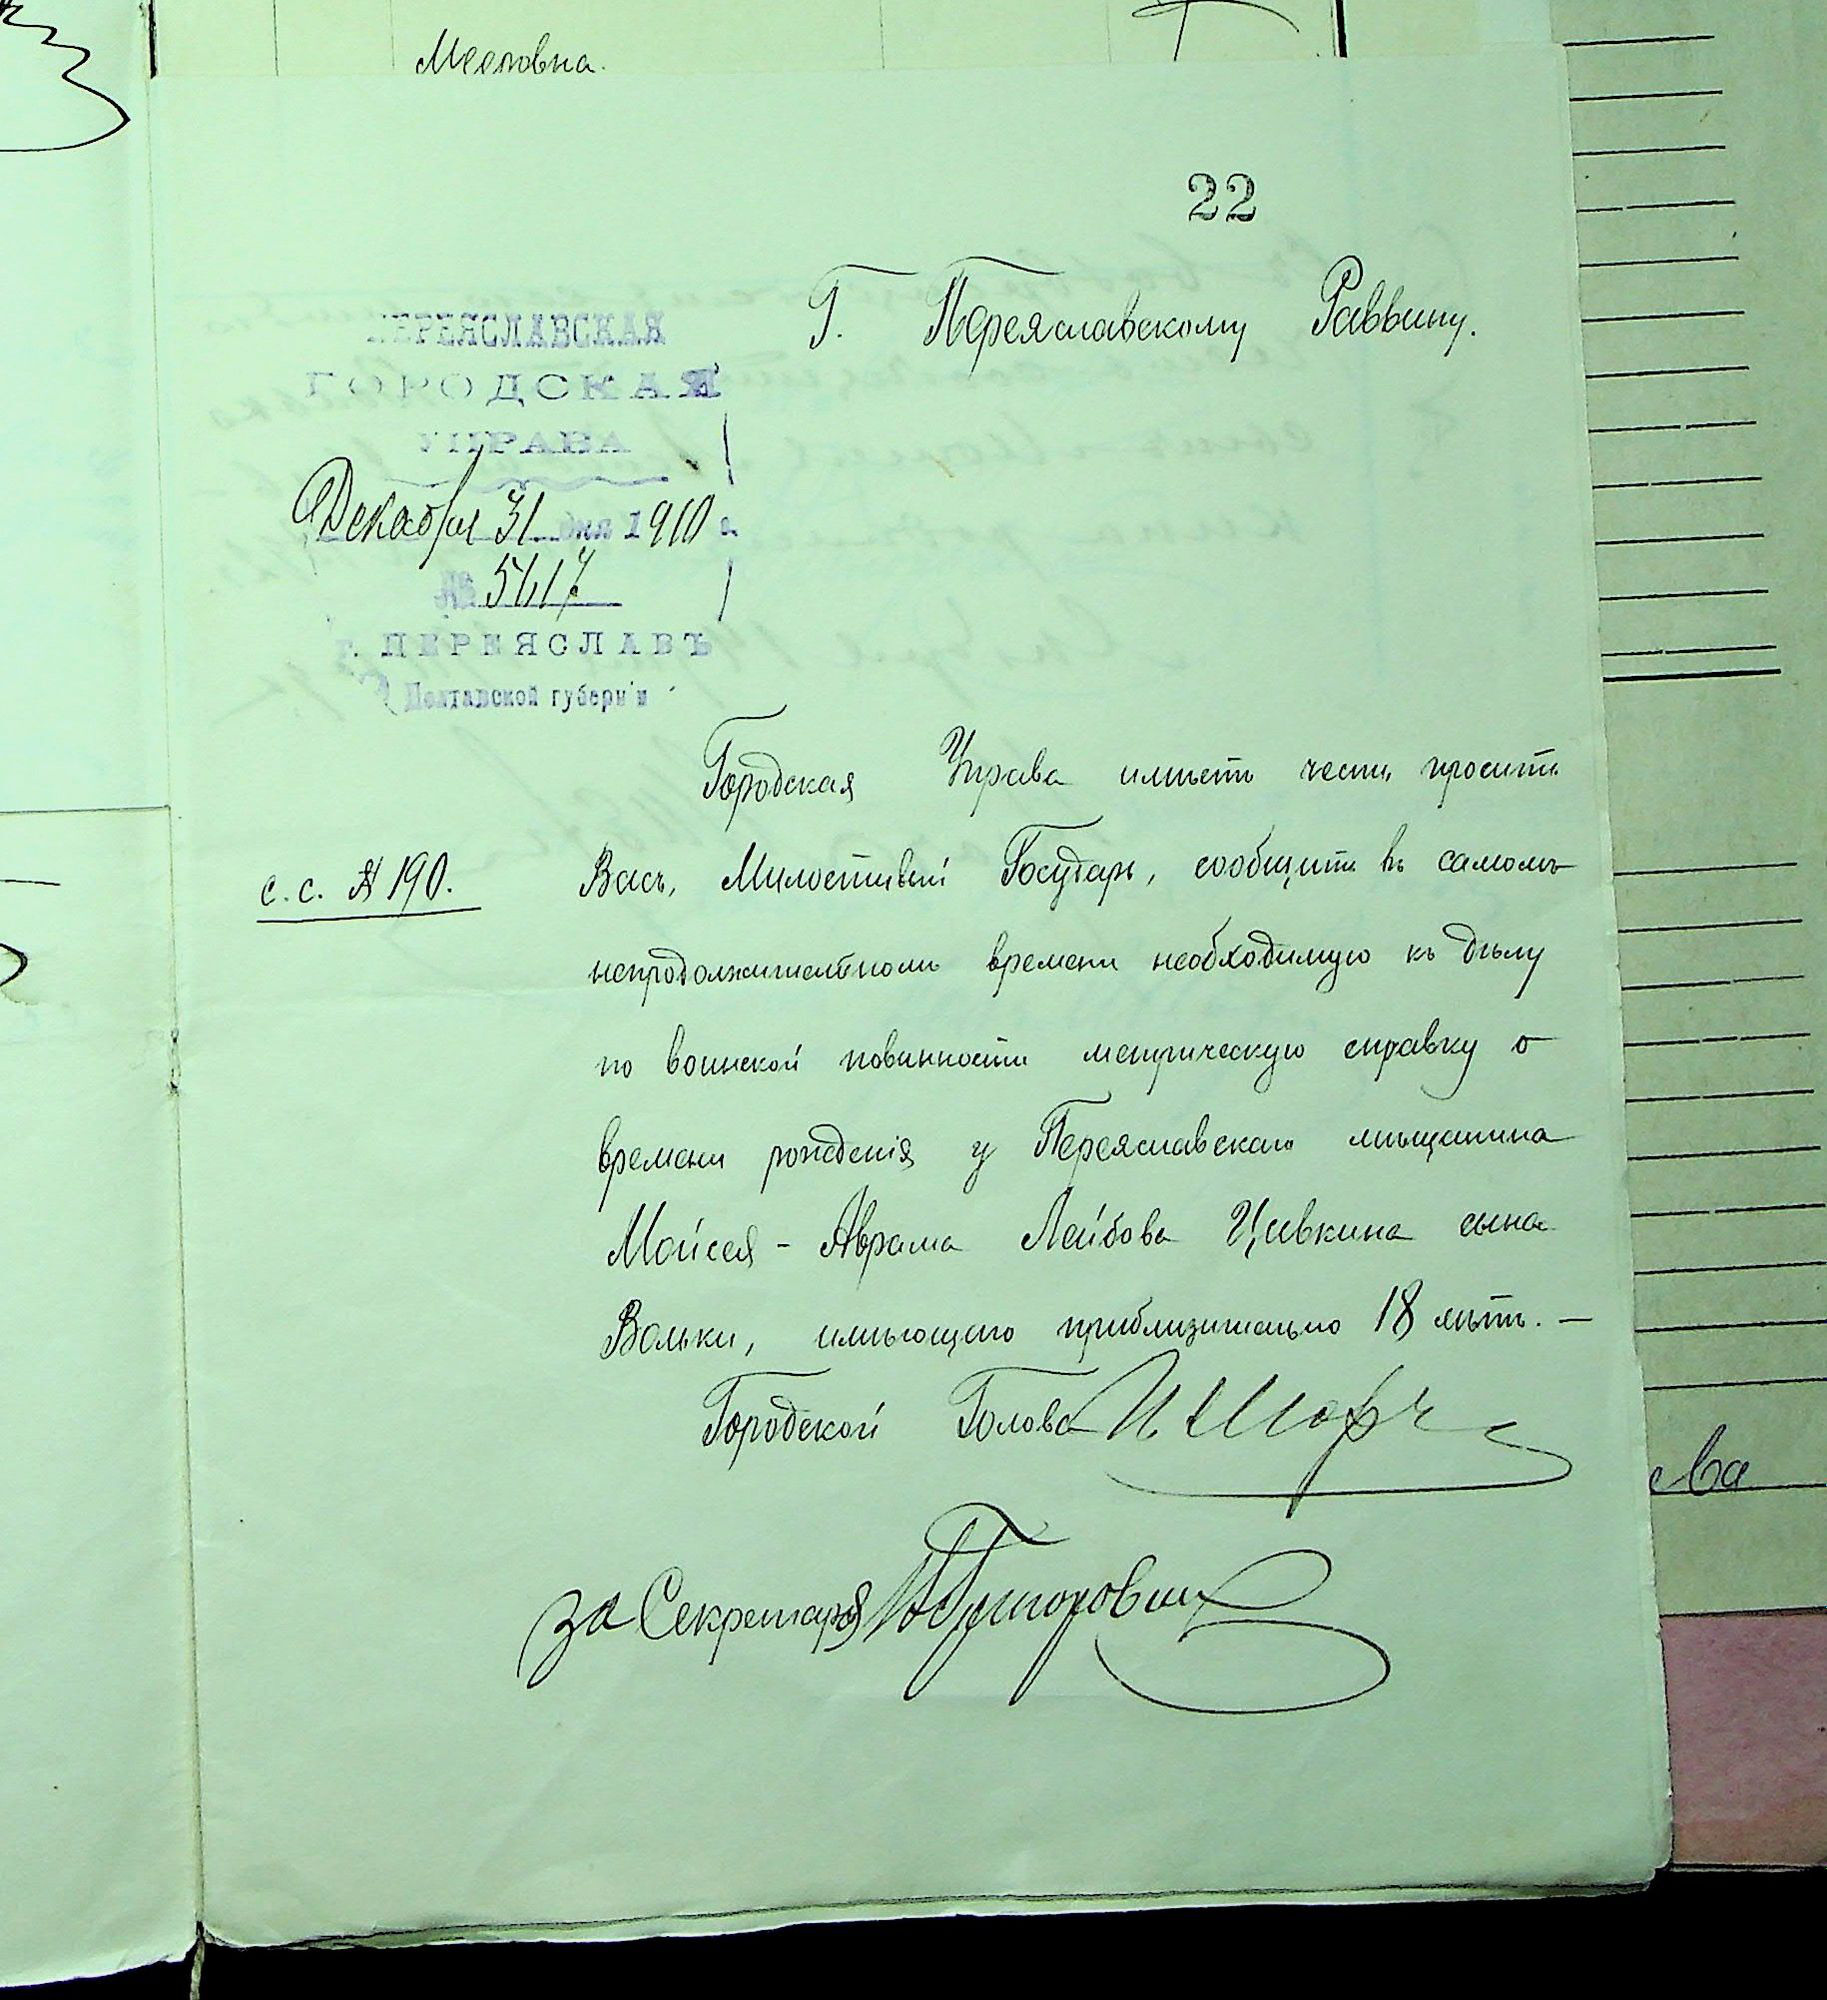 22
Г. Переяславскому Раввину.
ПЕРЕЯСЛАВСКАЯ
ГОРОДСКАЯ
УПРАВА
Декабря 31 дня 1910 г.
№ 5617
г. ПЕРЕЯСЛАВЪ
Полтавской губерніи
Городская Управа имѣетъ честь просить
с.с. № 190.
Васъ, Милостивый Государь, сообщить въ самомъ
непродолжительномъ времени необходимую къ дѣлу
по воинской повинности метрическую справку о
времени рожденія у Переяславскаго мѣщанина
Мойсея - Аврама Лейбова Цивкина сына
Вольки, имѣющаго приблизительно 18 лѣтъ. —
Городской Голова
за Секретаря Григорович